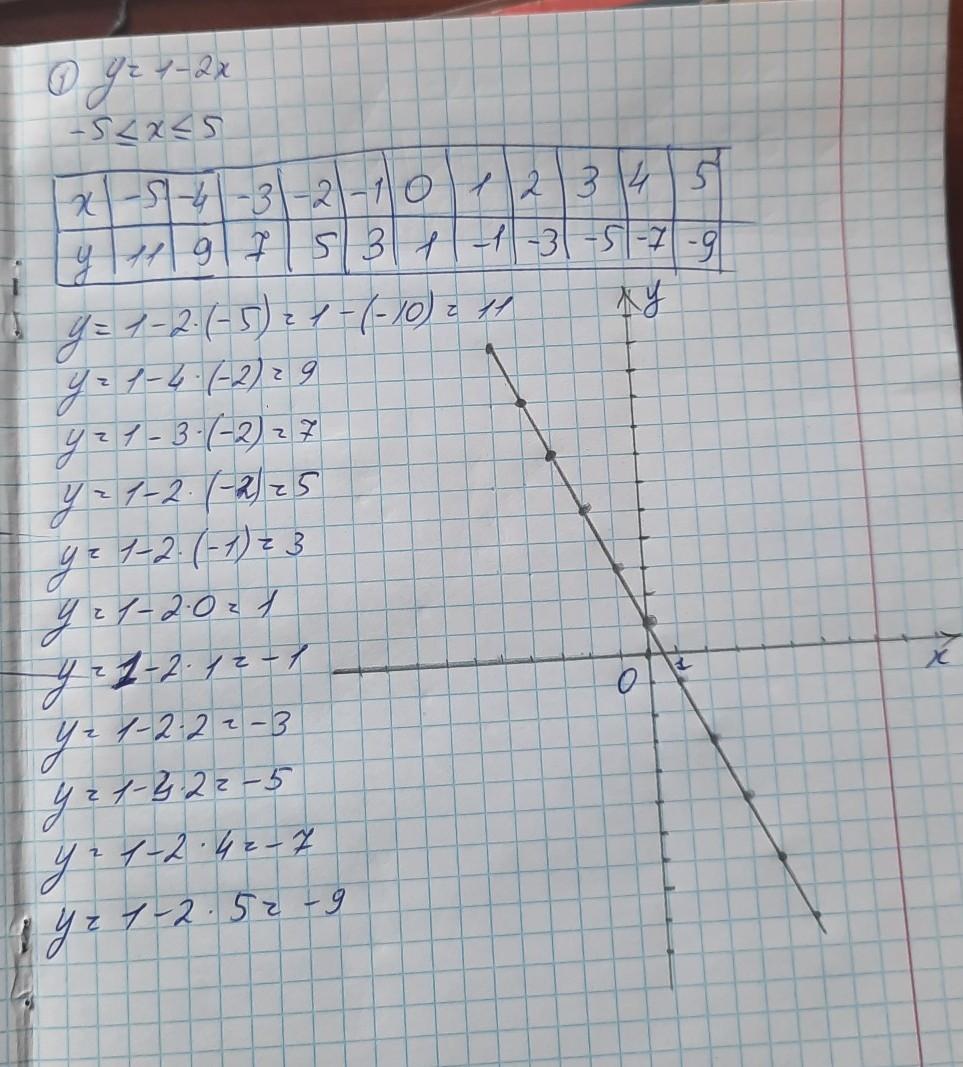 ① y = 1 - 2x
-5 ≤ x ≤ 5
x -5 -4 -3 -2 -1 0 1 2 3 4 5
y 11 9 7 5 3 1 -1 -3 -5 -7 -9
y = 1 - 2 · (-5) = 1 - (-10) = 11
y
y = 1 - 4 · (-2) = 9
y = 1 - 3 · (-2) = 7
y = 1 - 2 · (-2) = 5
y = 1 - 2 · (-1) = 3
y = 1 - 2 · 0 = 1
y = 1 - 2 · 1 = -1
0 1 x
y = 1 - 2 · 2 = -3
y = 1 - 3 · 2 = -5
y = 1 - 2 · 4 = -7
y = 1 - 2 · 5 = -9